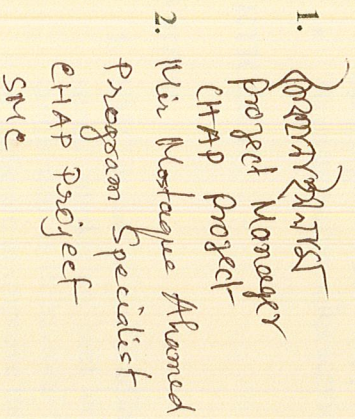 1.
Project Manager
CHAP Project
2. Mir Mostaque Ahamed
Program Specialist
CHAP Project
SMC